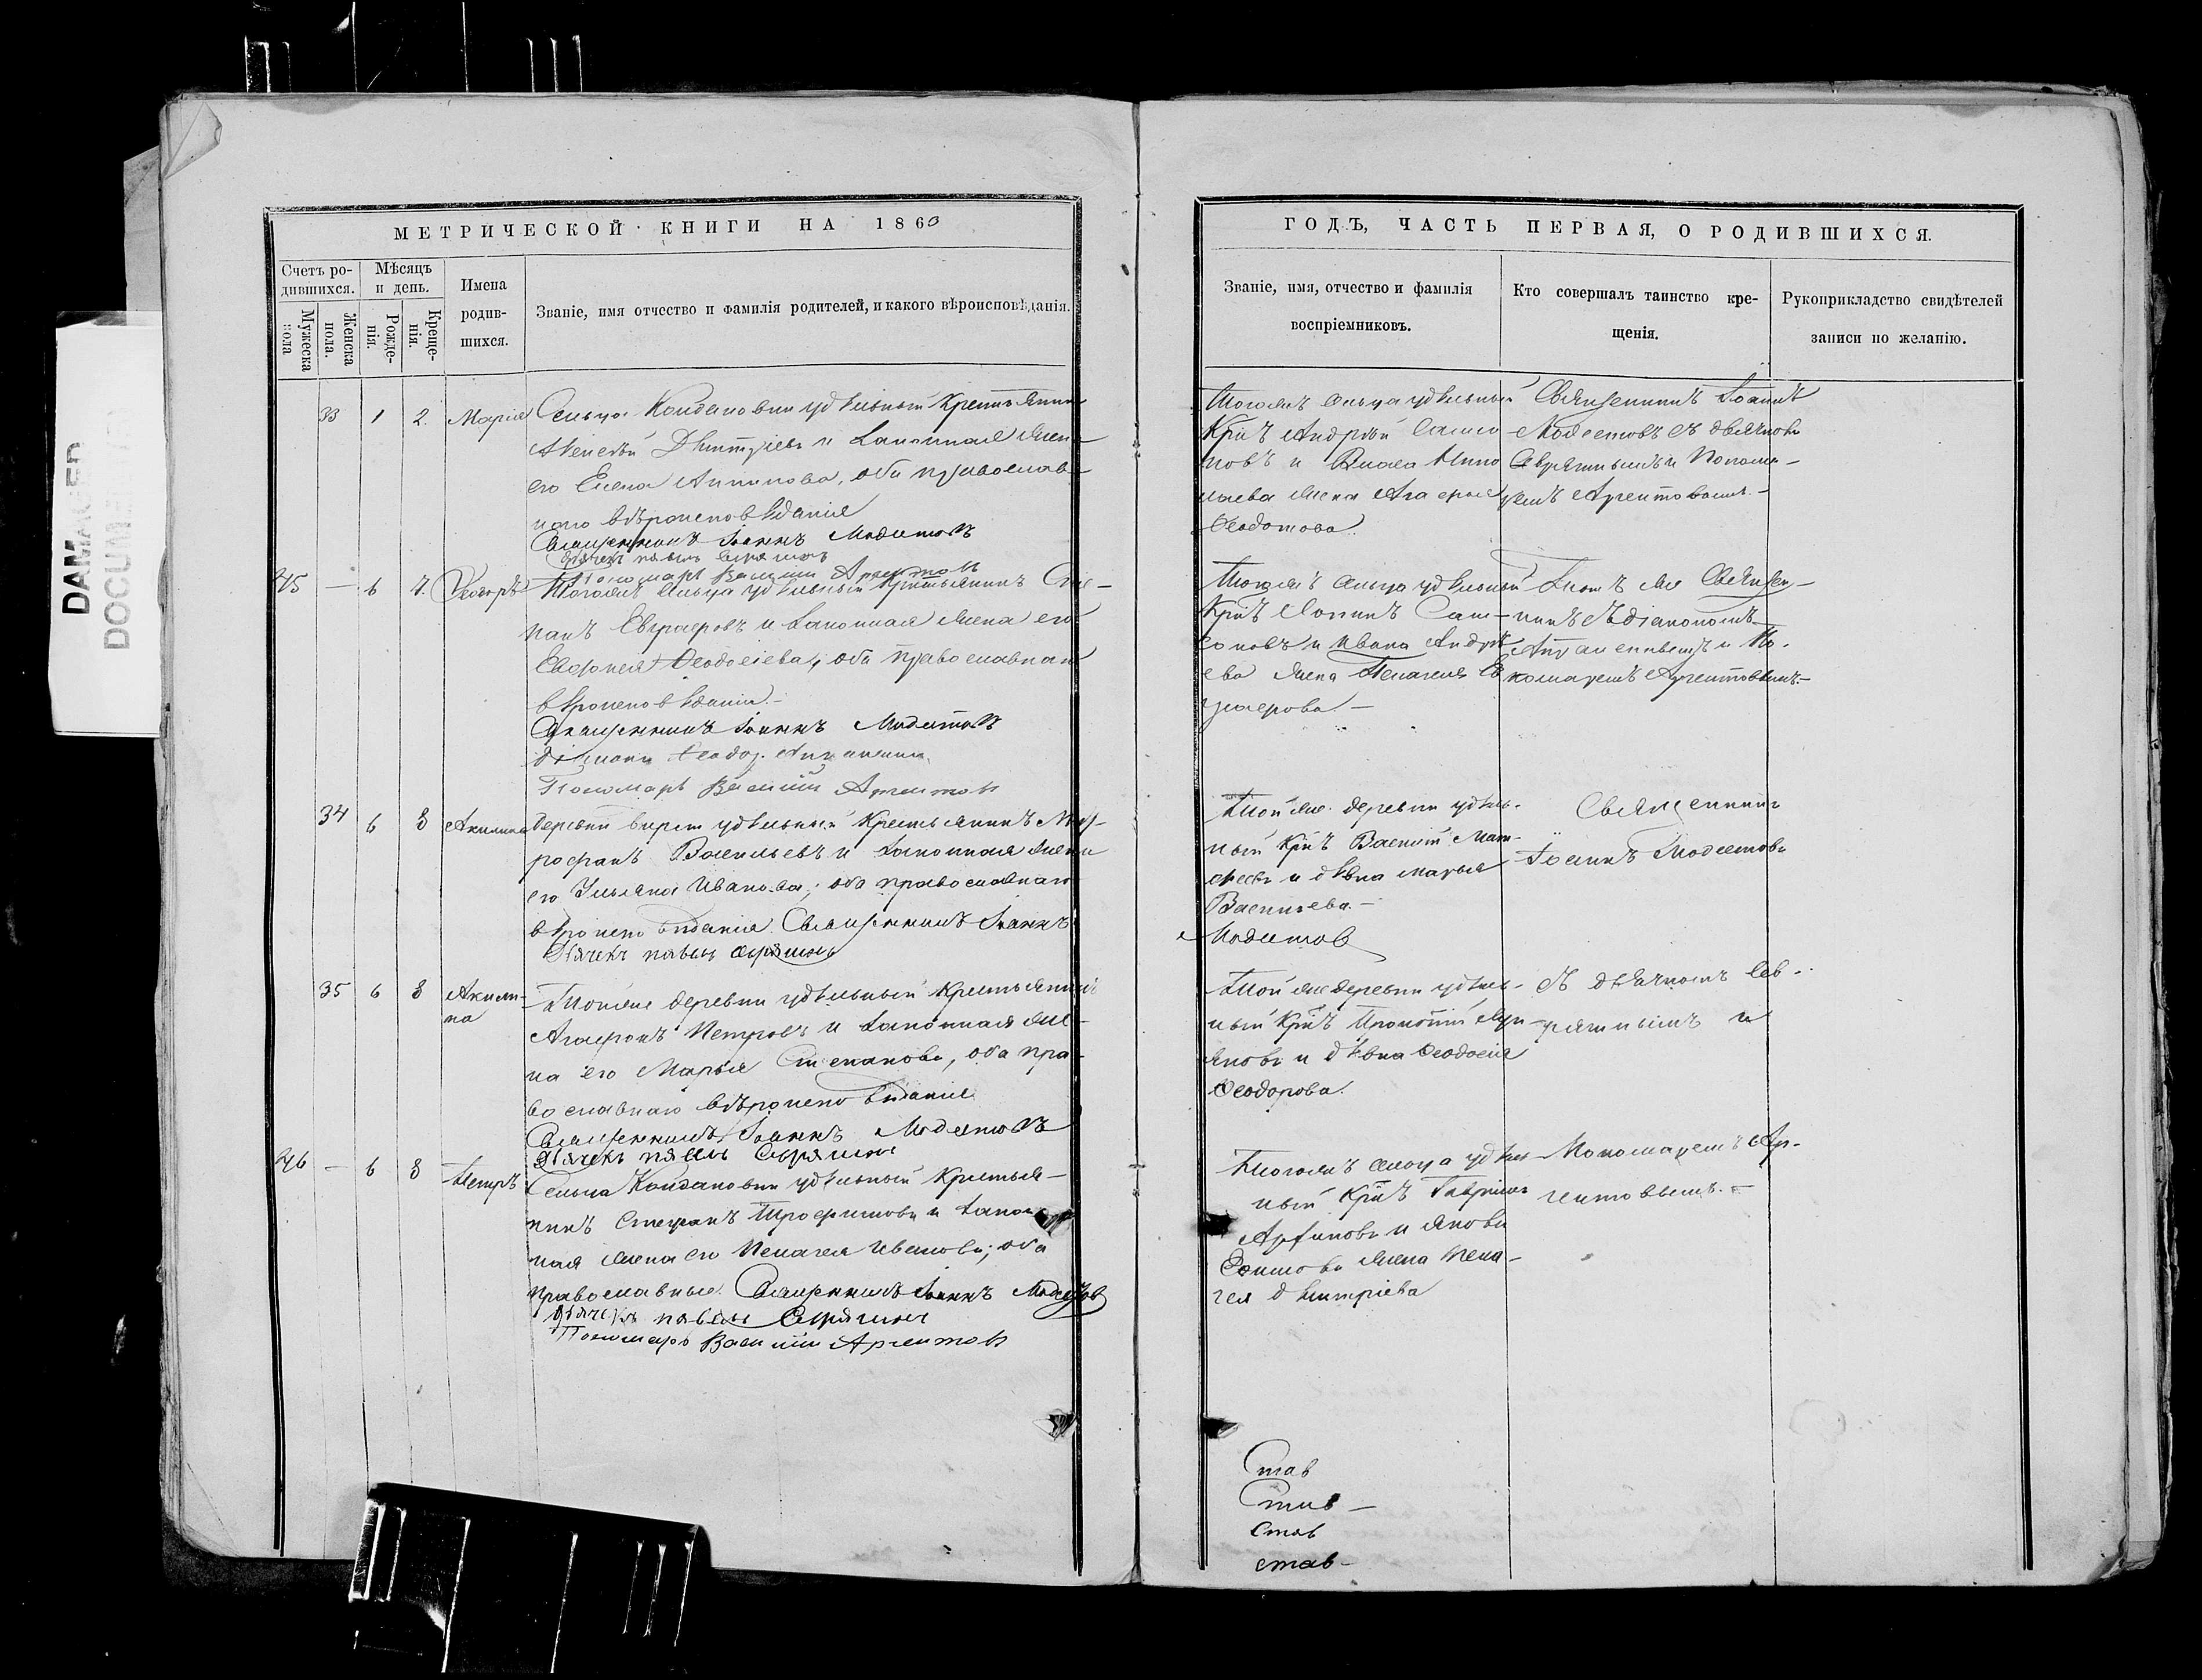 DAMAGED
DOCUM
МЕТРИЧЕСКОЙ КНИГИ НА 1860
Счетъ ро-
дившихся.
Мѣсяцъ
и день.
Мужеска
пола
Женска
пола.
Рожде-
нія.
Креще-
нія.
Имена
родив-
шихся.
Званіе, имя отчество и фамилія родителей, и какого вѣроисповѣданія.
33 1 2. Марія
Сельца удѣльный Крестьянинъ
Алексѣй Дмитріевъ и законная жена
его Елена Антипова, оба православ-
наго вѣроисповѣданія
Священникъ Іоаннъ Модестовъ
Дьячекъ Павелъ
Пономарь Василій Аргентовъ
45 — 6 7. Феодоръ
Тогожъ сельца удѣльный крестьянинъ Сте-
панъ Евграфовъ и законная жена его
Евфимія Феодосіева; оба православнаго
вѣроисповѣданія.
Священникъ Іоаннъ Модестовъ
Діаконъ Феодор.
Пономарь Василій Аргентовъ
34 6 8 Акилина
Деревни удѣльный Крестьянинъ Мит-
рофанъ Васильевъ и законная жена
его Ульяна Иванова; оба православнаго
вѣроисповѣданія. Священникъ Іоаннъ
Дьячекъ Павелъ
35 6 8 Акили-
на
Тойже деревни удѣльный Крестьянинъ
Агафонъ Петровъ и законная же-
на его Марья Степанова, оба пра-
вославнаго вѣроисповѣданія
Священникъ Іоаннъ Модестовъ
Дьячекъ Павелъ
46 — 6 8 Петръ
Сельца удѣльный Крестья-
нинъ Стефанъ Трофимовъ и закон
ная жена его Пелагея Иванова; оба
православные. Священникъ Іоаннъ Модестовъ
Дьячекъ Павелъ
Пономарь Василій Аргентовъ
ГОДЪ, ЧАСТЬ ПЕРВАЯ, О РОДИВШИХСЯ.
Званіе, имя, отчество и фамилія
воспріемниковъ.
Кто совершалъ таинство кре-
щенія.
Рукоприкладство свидѣтелей
записи по желанію.
Тогожъ сельца удѣльный
Крнъ Андрей Самсо
новъ и Власа Нико
лаева жена Агафья
Феодотова
Священникъ Іоаннъ
Модестовъ съ дьячкомъ
и Понома-
ремъ Аргентовымъ.
Тогожъ сельца удѣльный
Крнъ Логинъ Сам-
соновъ и Ивана Андрѣ
ева жена Пелагея Ев
графова —
Тотъ же Священ-
никъ съ діакономъ
и По-
номаремъ Аргентовымъ.
Тойже деревни удѣль-
ный Крнъ Василій Мат-
фѣевъ и дѣвка Марья
Васильева. —
Модестовъ
Священникъ
Іоаннъ Модестовъ
Тойже деревни удѣль-
ный Крнъ Прокопій Лук-
яновъ и дѣвка Феодосія
Феодорова.
съ дьячкомъ
и
Тогожъ сельца удѣль
ный Крнъ Гавріилъ
и Якова
жена Пела-
гея Дмитріева
Пономаремъ Ар-
гентовымъ. —
Став
Став —
Став
Став —